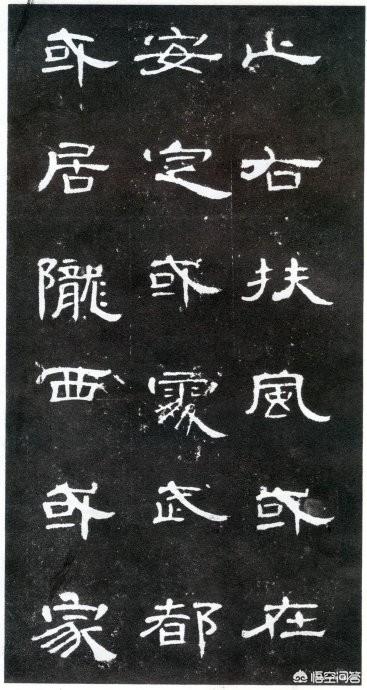 止右扶風或在
安定或處武都
或居隴西或家
悟空问答